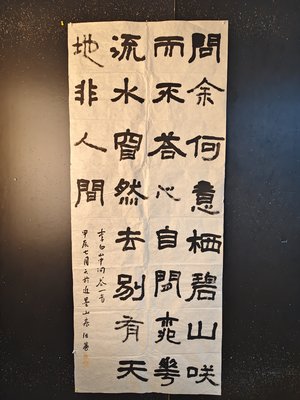 問余何意栖碧山咲
而不荅心自閑桃華
流水窅然去別有天
地非人間
李白山中问答一首
甲辰七月
山房